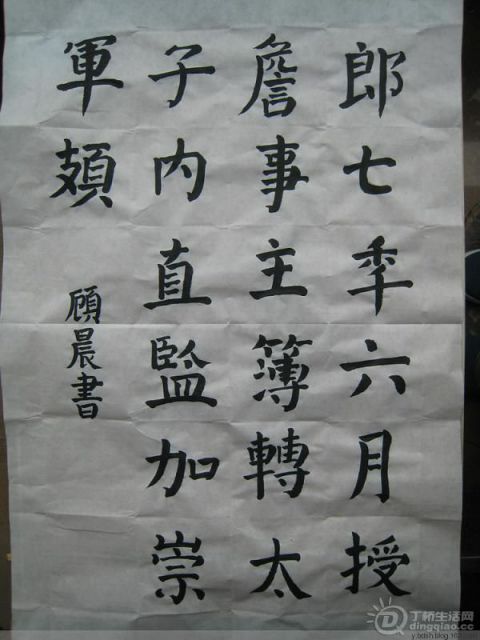 郎七秊六月授
詹事主簿轉太
子内直監加崇
軍
顧晨書
丁桥生活网
dingqiao.cc